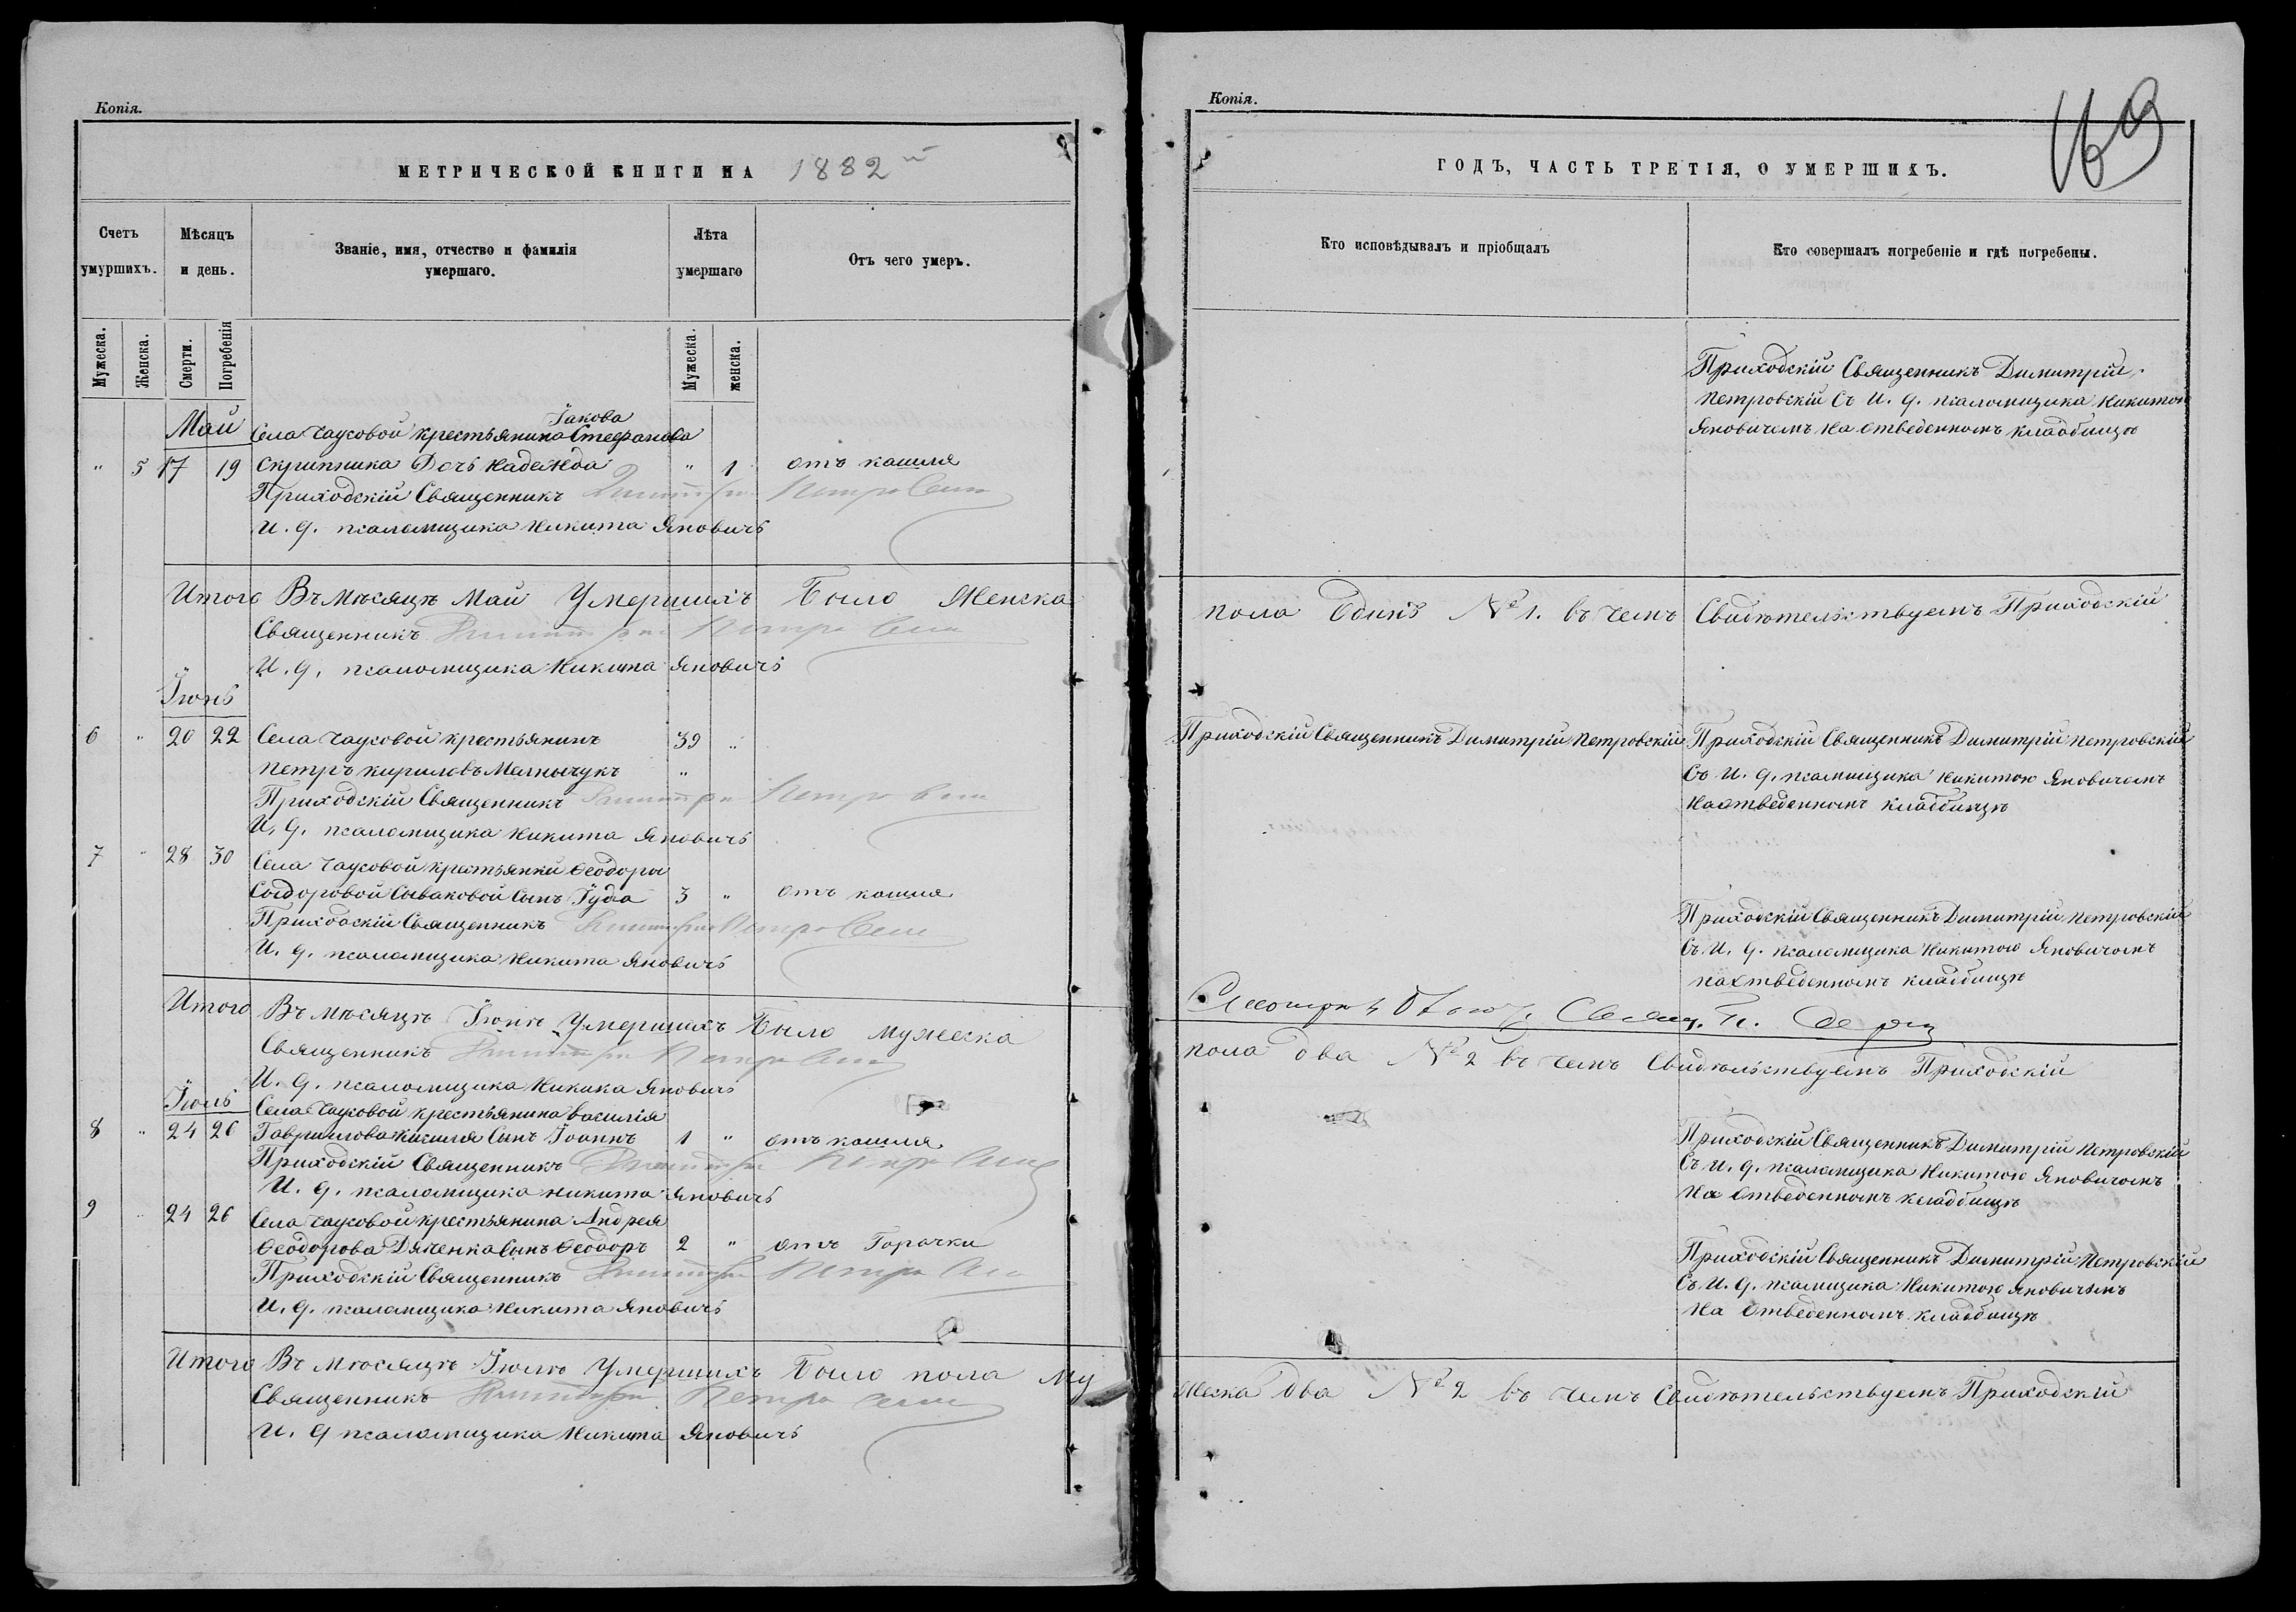 Копія.
МЕТРИЧЕСКОЙ КНИГИ НА 1882 й
Счетъ умуршихъ.
Мѣсяцъ и день.
Званіе, имя, отчество и фамилія умершаго.
Лѣта умершаго
Отъ чего умеръ.
Мужеска.
Женска.
Смерти.
Погребенія
Мужеска.
женска.
Май
Іакова
Села Чаусовой крестьянина Стефанова
" 5 17 19 Скрипника Дочь Надежда " 1 отъ кашля
Приходскій Священникъ Димитрій Петровскій
И. д. псаломщика Никита Яновичъ
Итого Въ Мѣсяцѣ Май Умершихъ Было Женска
Священникъ Димитрій Петровскій
И. д. псаломщика Никита Яновичъ
Іюнь
6 " 20 22 Села Чаусовой крестьянинъ 39 "
Петръ Кириловъ "
Приходскій Священникъ Димитрій Петровскій
И. д. псаломщика Никита Яновичъ
7 " 28 30 Села Чаусовой крестьянки Ѳеодоры
Сыдоровой Сываковой Сынъ Іуда 3 " отъ кашля
Приходскій Священникъ Димитрій Петровскій
И. д. псаломщика Никита Яновичъ
Итого Въ мѣсяцѣ Іюнѣ Умершихъ Было мужеска
Священникъ Димитрій Петровскій
И. д. псаломщика Никика Яновичъ
Іюль
Села Чаусовой крестьянина Василія
8 " 24 26 Гаврилова Киселя Сынъ Іоаннъ 1 " отъ кашля
Приходскій Священникъ Димитрій Петровскій
И. д. псаломщика Никита Яновичъ
9 " 24 26 Села Чаусовой крестьянина Андрея
Ѳеодорова Дяченка Сынъ Ѳеодоръ 2 " отъ Горачки
Приходскій Священникъ Димитрій Петровскій
И. д. псаломщика Никита Яновичъ
Итого Въ Мѣсяцѣ Іюлѣ Умершихъ Было пола Му
Священникъ Димитрій Петровскій
И. д псаломщика Никита Яновичъ
Копія.
169
ГОДЪ, ЧАСТЬ ТРЕТІЯ, О УМЕРШИХЪ.
Кто исповѣдывалъ и пріобщалъ
Кто совершалъ погребеніе и гдѣ погребены.
Приходскій Священникъ Димитрій
Петровскій Съ И. д. псаломщика Никитою
Яновичемъ На отведенномъ кладбищѣ
пола Одинъ № 1. въ чемъ Свидѣтельствуемъ Приходскій
Приходскій Священникъ Димитрій Петровскій
Приходскій Священникъ Димитрій Петровскій
Съ И. д. псамщика Никитою Яновичемъ
На отведенномъ кладбищѣ
Приходскій Священникъ Димитрій Петровскій
Съ И. д. псаломщика Никитою Яновичемъ
на отведенномъ кладбищѣ
Свящ.
пола два № 2 въ чемъ Свидѣльствуемъ Приходскій
Приходскій Священникъ Димитрій Петровскій
Съ И. д. псаломщика Никитою Яновичемъ
На отведенномъ кладбищѣ
Приходскій Священникъ Димитрій Петровскій
Съ И. д. псамщика Никитою Яновичемъ
На отведенномъ кладбищѣ
жеска два № 2 въ чемъ Свидѣтельствуемъ Приходскій